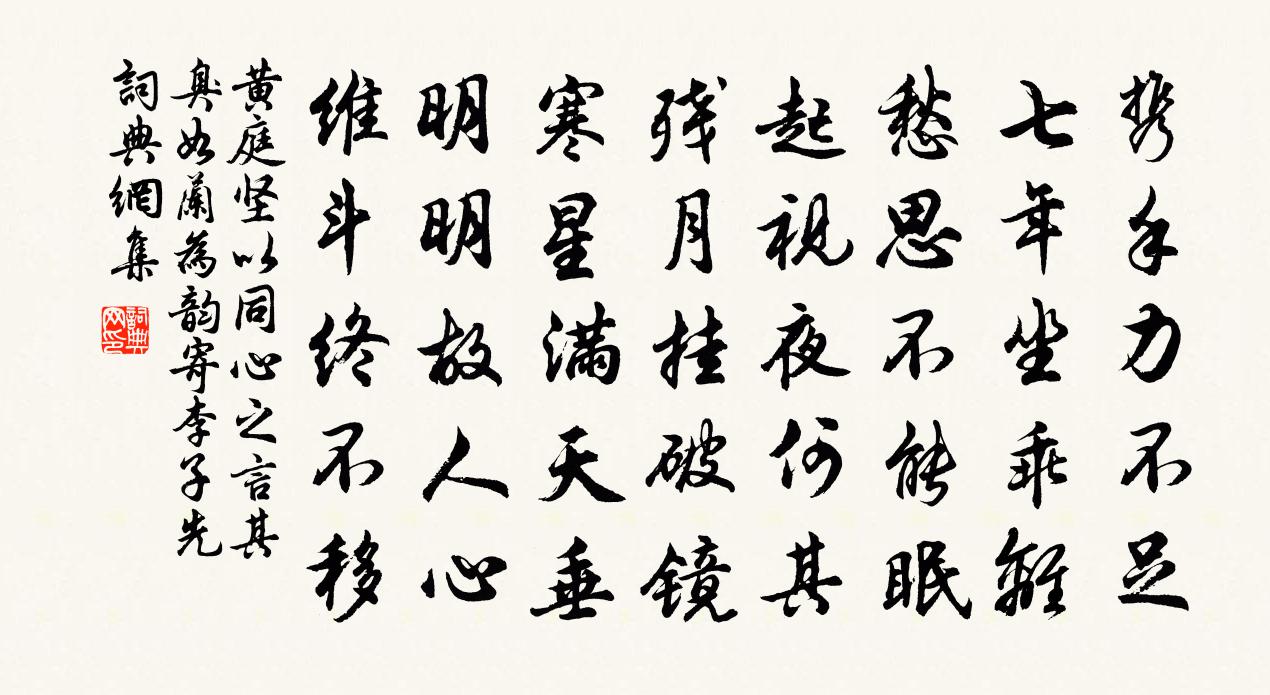 携手力不足
七年坐乖離
愁思不能眠
起視夜何其
残月挂破镜
寒星满天垂
明明故人心
维斗终不移
黄庭坚以同心之言其
臭如蘭為韵寄李子先
詞典網集
詞典网印